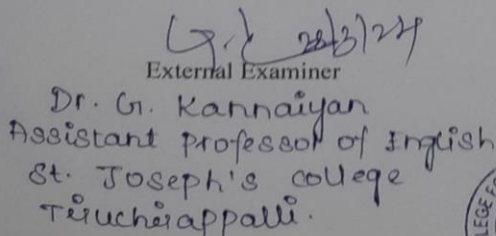 28/3/24
External Examiner
Dr. G. Kannaiyan
Assistant professor of English
St. Joseph's college
Tiruchirappalli.
LEGE FO